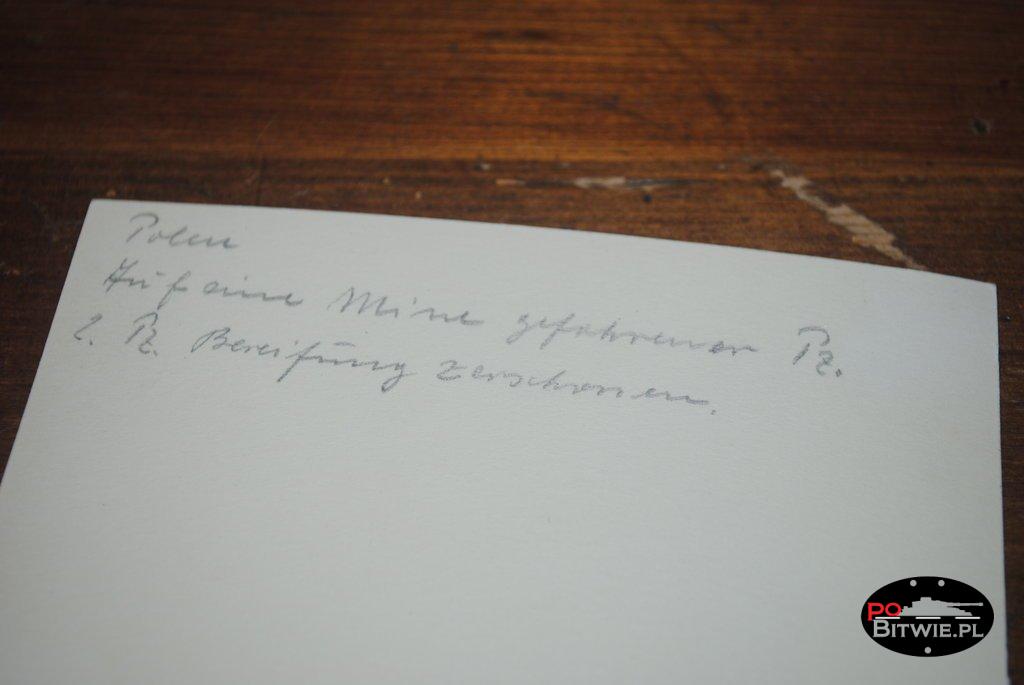 Polen
Auf eine Mine gefahrener Pz.
2. Pz. Bereifung zerschossen.
PO
BITWIE.PL